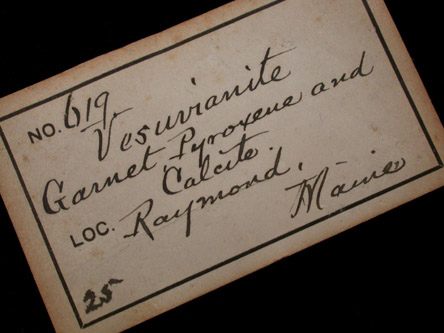 NO. 619
Vesuvianite
Garnet Pyroxene and
Calcite.
LOC. Raymond,
Maine
25